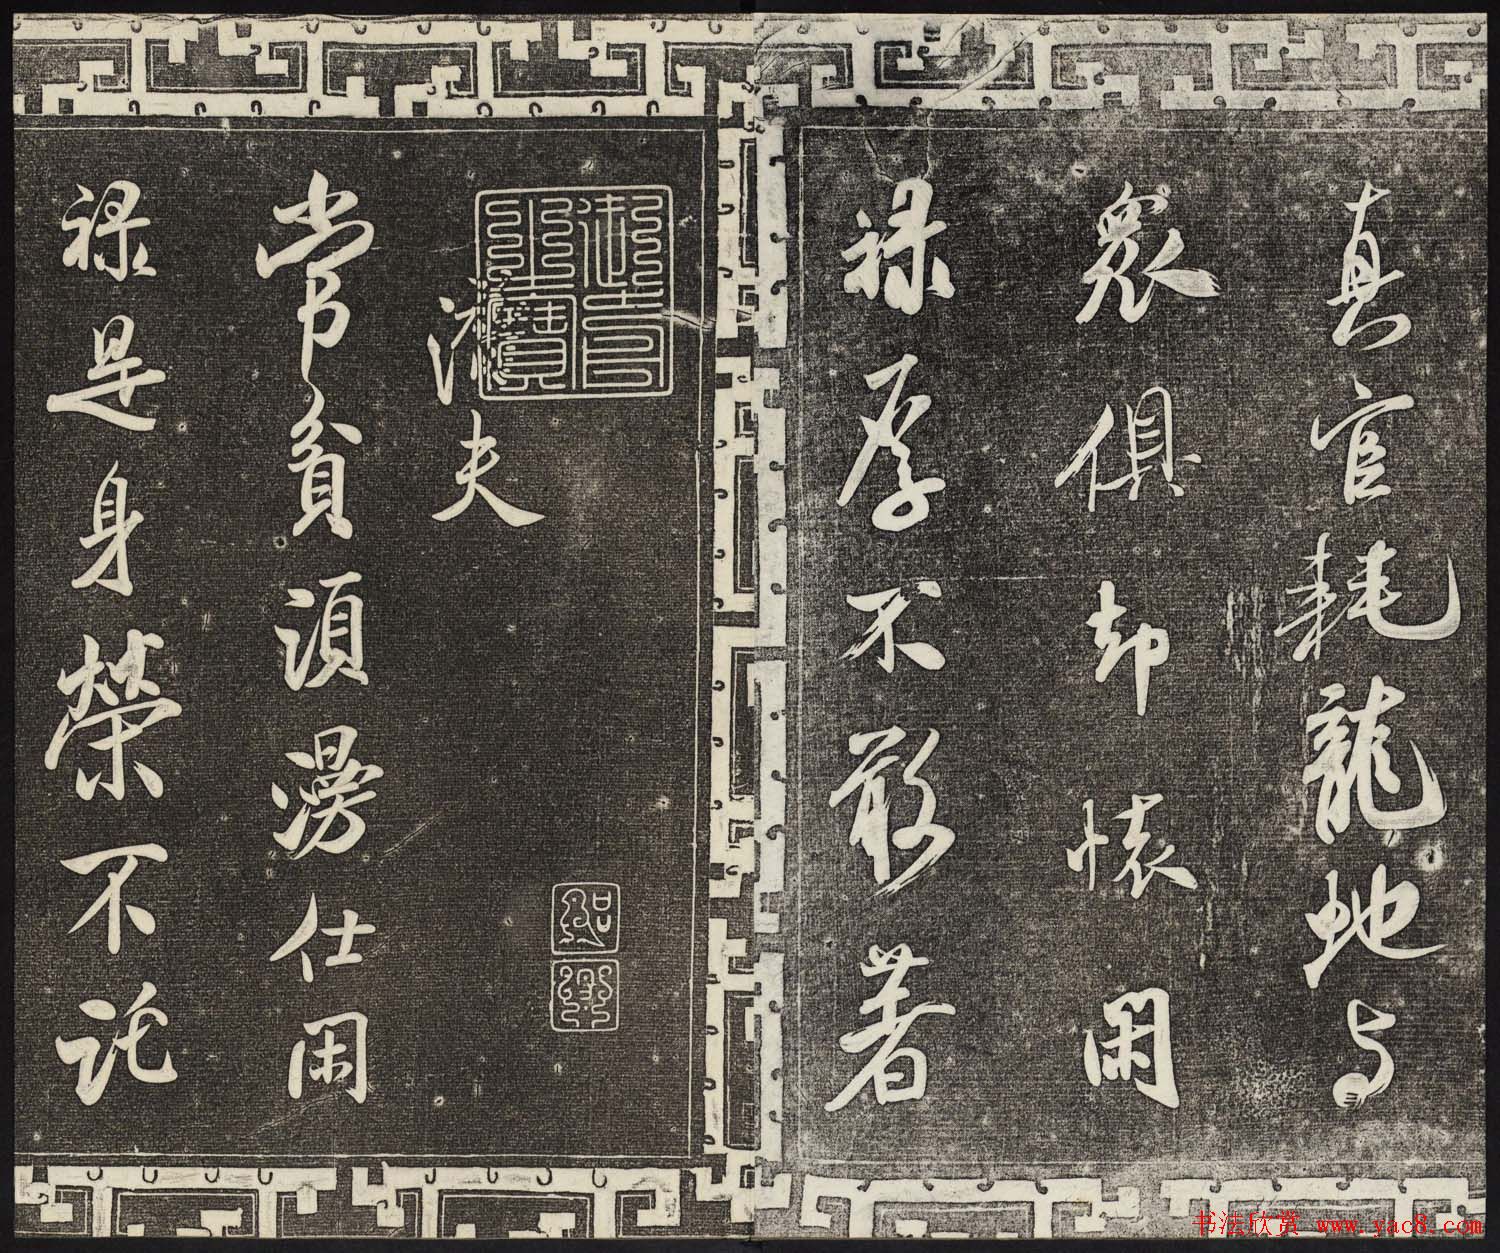 真官耗龍虵与
衆俱却懷閑
禄厚不敢著
潛夫
常貧須漫仕閑
禄是身榮不託
紹興
书法欣赏 www.yac8.com